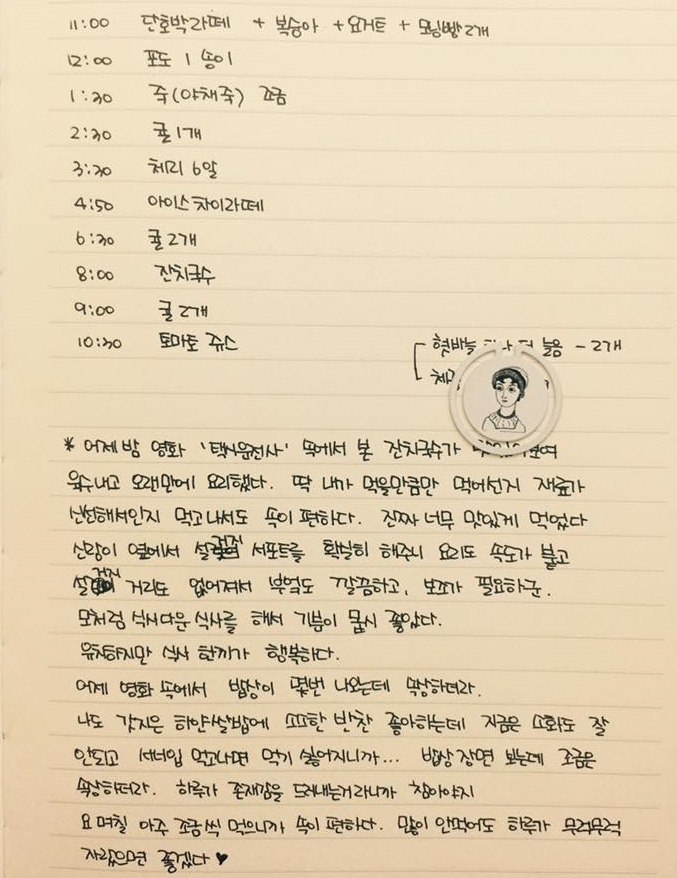 11:00 단호박라떼 + 복숭아 + 요거트 + 모닝빵 2개
12:00 포도 1송이
1:30 죽(야채죽) 조금
2:30 귤 1개
3:30 체리 6알
4:50 아이스 차이라떼
6:30 귤 2개
8:00 잔치국수
9:00 귤 2개
10:30 토마토 쥬스
혓바늘 더 늚음 - 2개
* 어제 밤 영화 '택시운전사' 속에서 본 잔치국수가
육수내고 오랜만에 요리했다. 딱 내가 먹을만큼만 먹어선지 재료가
신선해서인지 먹고 나서도 속이 편하다. 진짜 너무 맛있게 먹었다
신랑이 옆에서 설거지 서포트를 확실히 해주니 요리도 속도가 붙고
설거지 거리도 없어져서 부엌도 깔끔하고, 보조가 필요하군.
모처럼 식사다운 식사를 해서 기분이 몹시 좋았다.
유치하지만 식사 한끼가 행복하다.
어제 영화 속에서 밥상이 몇번 나오는데 속상하더라.
나도 갓지은 하얀쌀밥에 소소한 반찬 좋아하는데 지금은 소화도 잘
안되고 서너입 먹고나면 먹기 싫어지니까... 밥상 장면 보는데 조금은
속상하더라. 하루가 존재감을 드러내는거라니까 참아야지
요 며칠 아주 조금씩 먹으니까 속이 편하다. 많이 안먹어도 하루가 무럭무럭
자랐으면 좋겠다 ♥